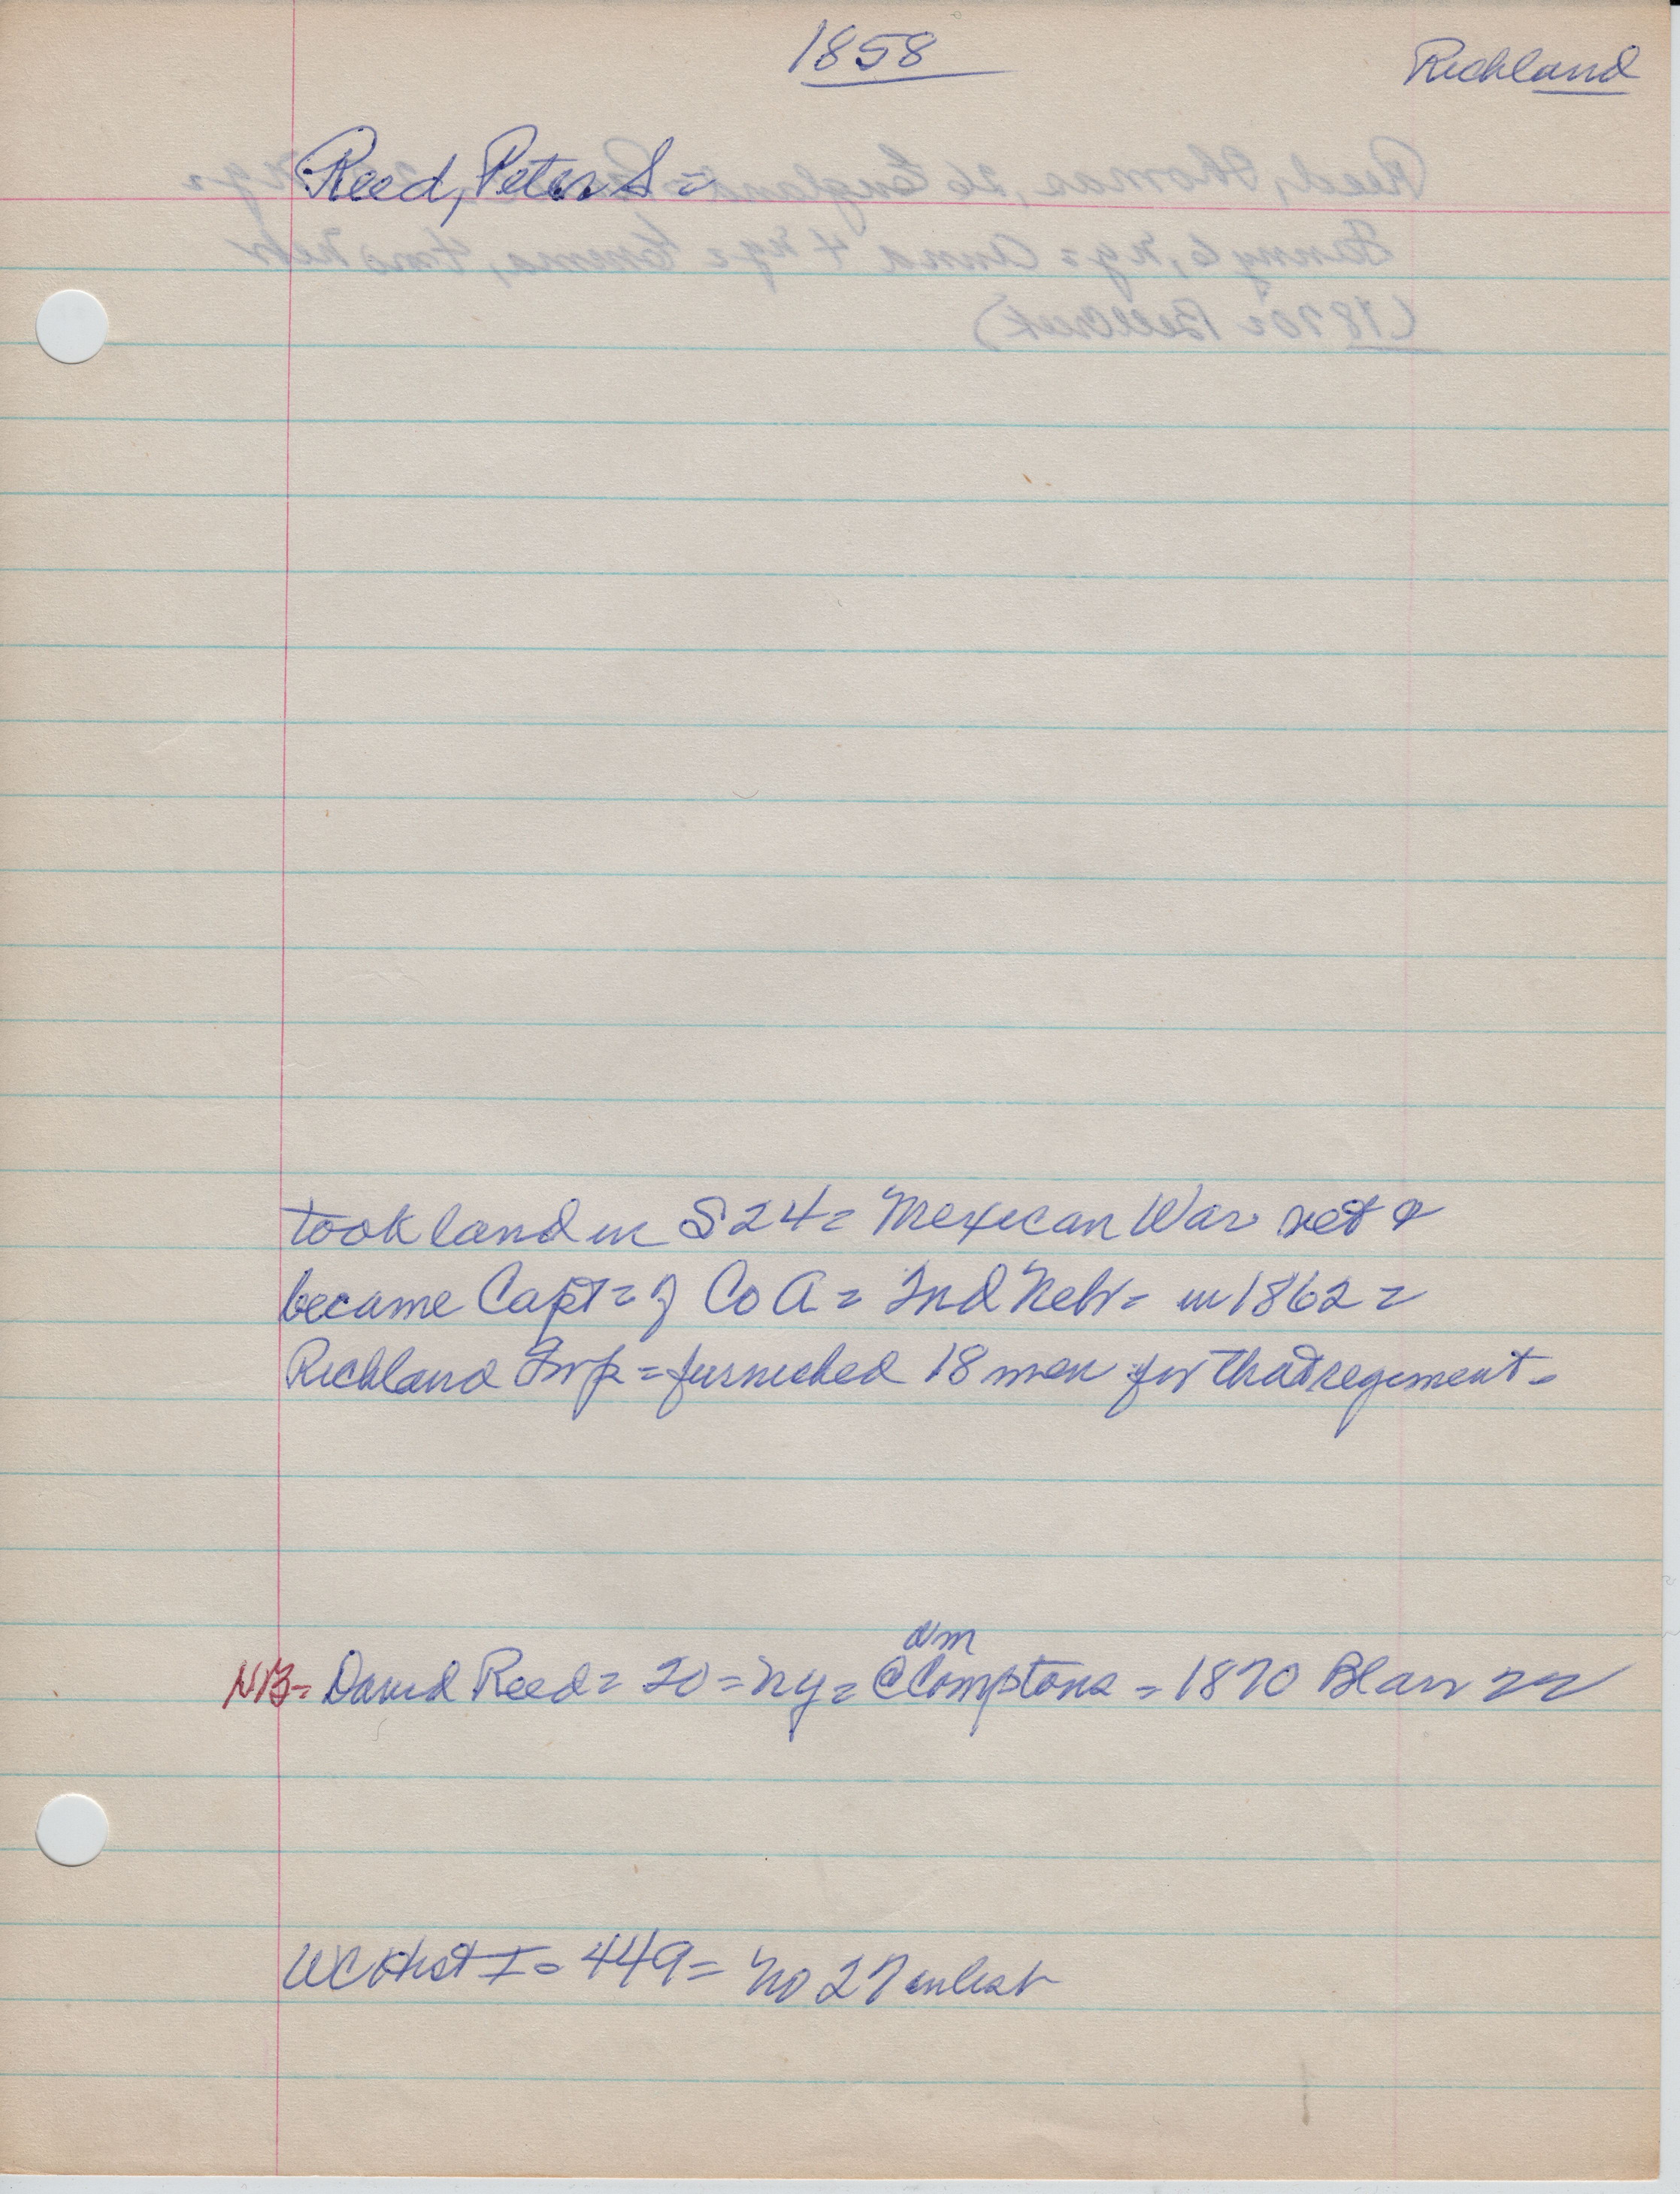 1858
Richland
Reed, Peter S =
took land in S 24 = Mexican War vet &
became Capt = of Co A = 2nd Nebr = in 1862 =
Richland Twp = furnished 18 men for that regiment -
NB = David Reed = 20 = NY = @ Comptons - 1870 Blair
Wm
WC Hist I = 449 = No 27 in list